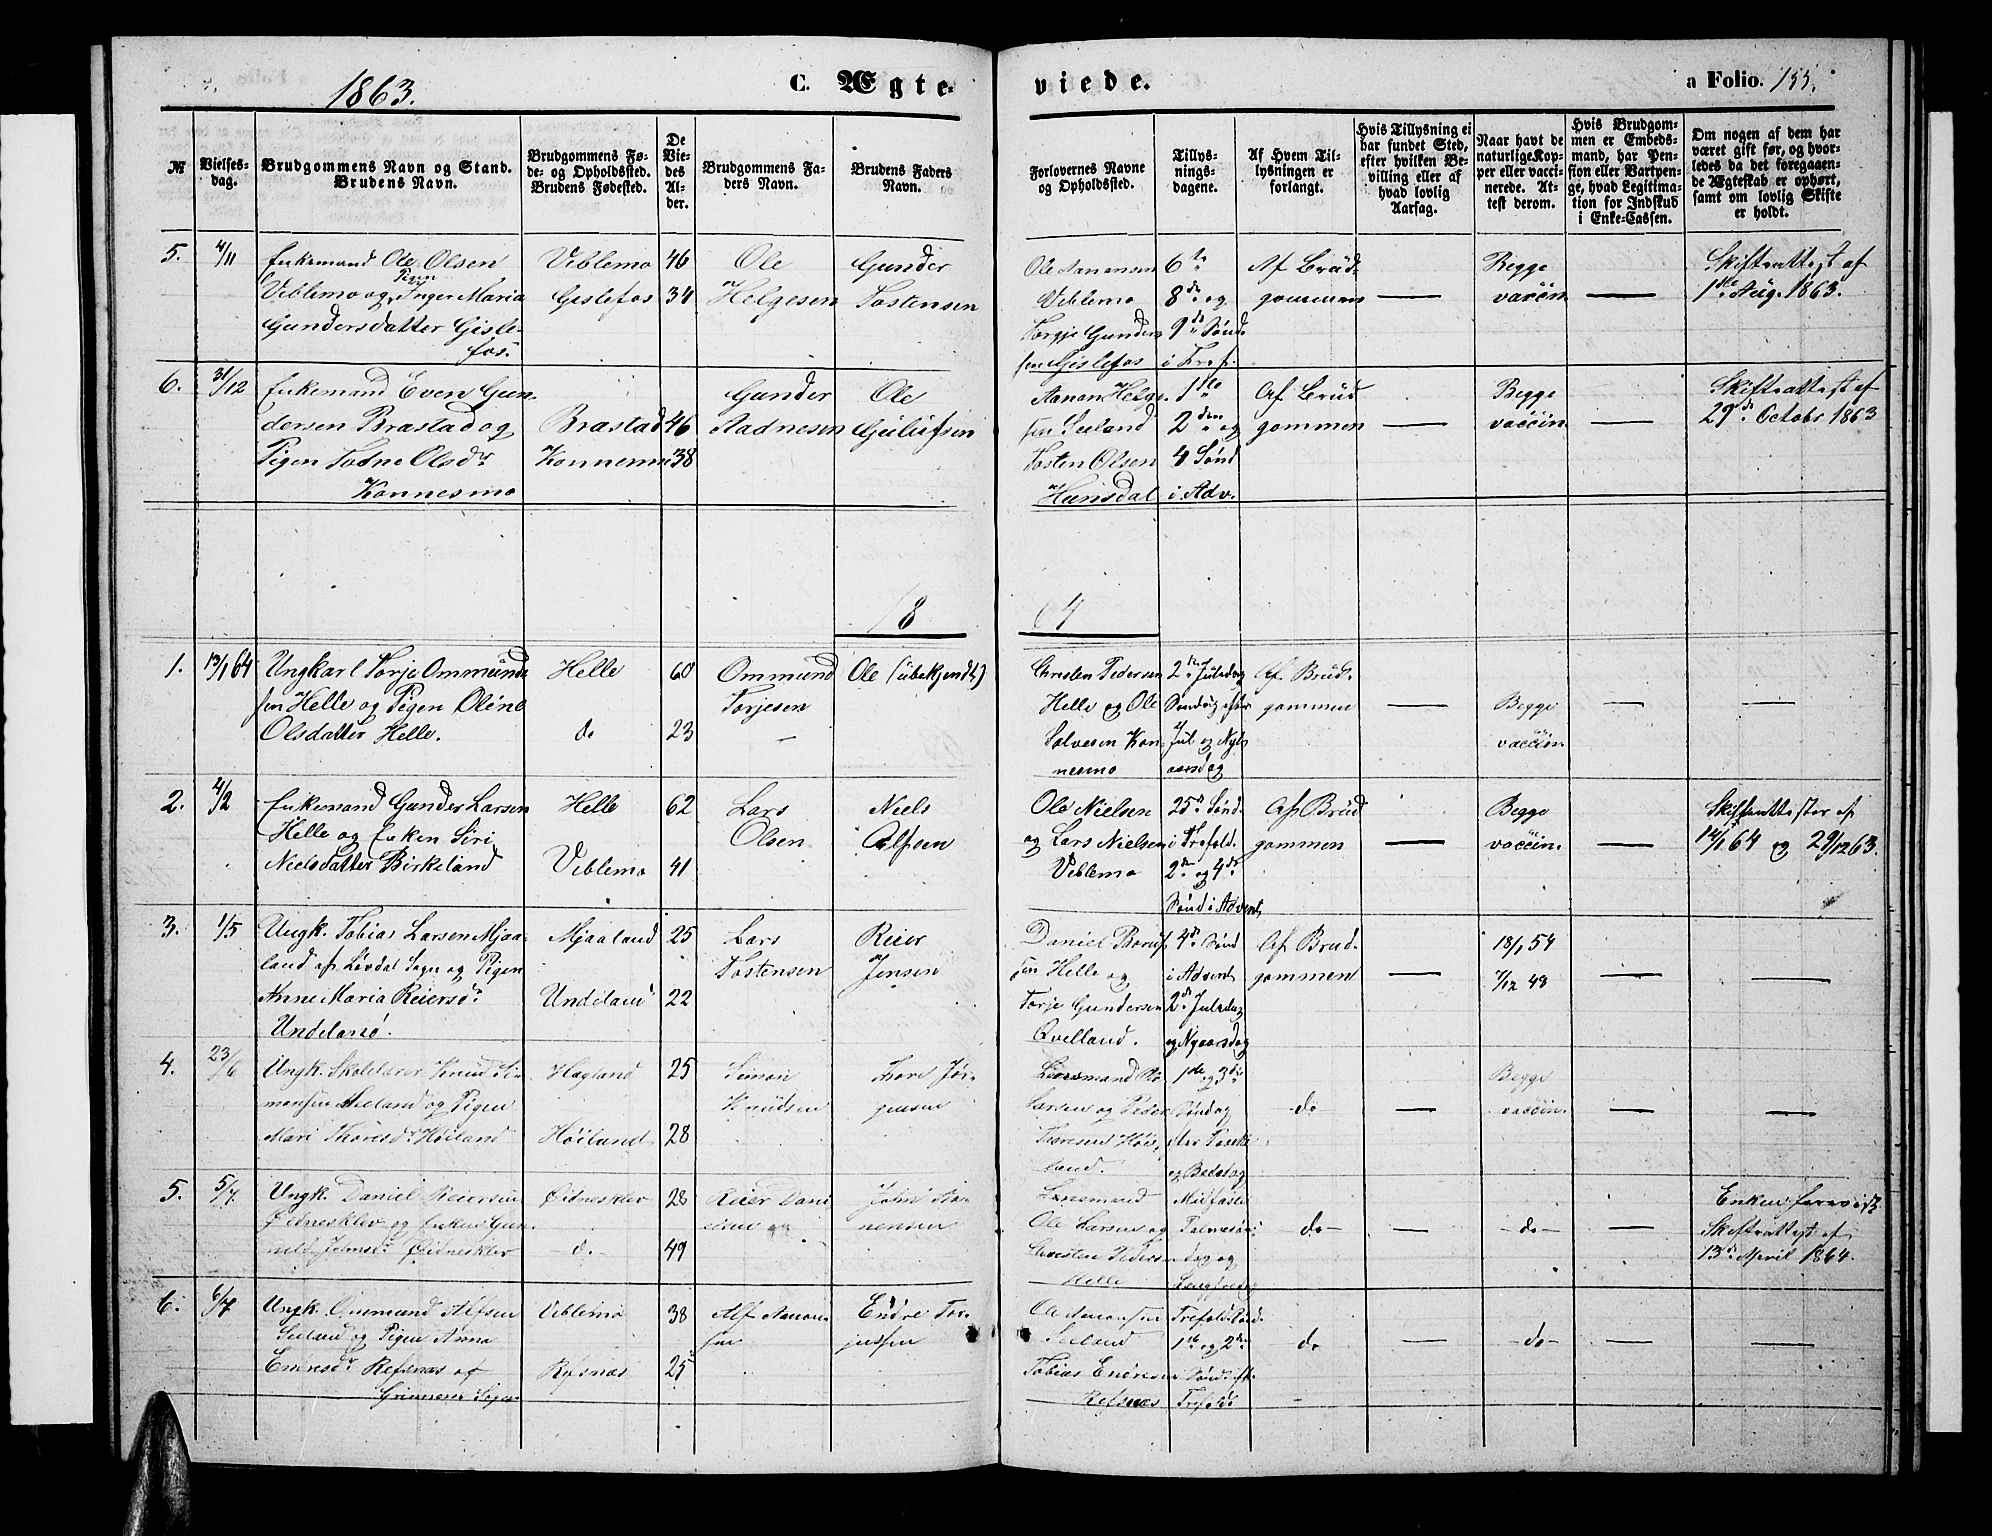 1863.
C. Ægte-
viede.
a Folio. 155.
№
Vielses-
dag.
Brudgommens Navn og Stand.
Brudens Navn.
Brudgommens Fø-
de- og Opholdssted.
Brudens Fødested.
De
Vie-
des
Al-
der.
Brudgommens Fa-
ders Navn.
Brudens Faders
Navn.
Forlovernes Navne
og Opholdssted.
Tillys-
nings-
dagene.
Af Hvem Til-
lysningen er
forlangt.
Hvis Tillysning ei
har fundet Sted,
efter hvilken Be-
villing eller af
hvad lovlig
Aarsag.
Naar havt de
naturlige Kop-
per eller vacci-
nerede. At-
test derom.
Hvis Brudgom-
men er Embeds-
mand, har Pen-
sion eller Vartpen-
ge, hvad Legitima-
tion for Indskud
i Enke-Cassen.
Om nogen af dem har
været gift før, og hvor-
ledes da det foregaaen-
de Ægteskab er ophørt,
samt om lovlig Skifte
er holdt.
5.
4/11
Enkemand Ole Olsen
Pigen
Veblemo og Inger Maria
Gundersdatter Gisle-
fos.
Veblemo
Geslefos
46
34
Ole
Helgesen
Gunder
Tostensen
Ole Aanonsen
Veblemo
Torgje Gunder-
sen Gislefos
6te
8de og
9de Sønd.
i Tref.
Af Brud-
gommen
Begge
vaccin
Skifteattest af
1ste Aug. 1863.
6.
31/12
Enkemand Even Gun-
dersen Brastad og
Pigen Todne Olsdr
Konnesmo
Brastad
Konnesmo
46
38
Gunder
Aadnesen
Ole
Gulufsen
Aanon Helge-
sen Seeland
Tosten Olsen
Hunsdal
1ste
2den og
4 Sønd
i Adv.
Af Brud
gommen
Begge
vaccin
Skifteattest af
29de Octobr 1863
18
64
1.
13/1 64
Ungkarl Torje Ommund-
sen Helle og Pigen Oline
Olsdatter Helle.
Helle
do
60
23
Ommund
Torjesen
Ole (ubekjendt)
Christen Pedersen
Helle og Ole
Salvesen Kon-
nesmo
2den Juledag
Søndag efter
Jul og Nyt-
aarsdag
Af Brud-
gommen
Begge
vaccin.
2.
4/2
Enkemand Gunder Larsen
Helle og Enken Siri
Nielsdatter Birkeland
Helle
Veblemo
62
41
Lars
Olsen
Niels
Alfsen
Ole Nielsen
og Lars Nielsen
Veblemo
25de Sønd.
i Trefold.
2den og 4de
Sønd i Advent
Af Brud
gommen
Begge
vaccin.
Skifteattester af
14/1 64 og 29/12 63.
3.
1/5
Ungk. Tobias Larsen Mjaa-
land af Løvdal Sogn og Pigen
Anne Maria Reiersdr
Undeland.
Mjaaland
Undeland
25
22
Lars
Tostensen
Reier
Jensen
Daniel
sen Helle og
Torje Gundersen
Qvelland.
4de Sønd
i Advent
2de Juledag
og Nyaarsdag
Af Brud-
gommen
18/1 54
7/12 43
4.
23/6
Ungk. Skolelærer Knud Si-
monsen Aaland og Pigen
Mari Thoresdr Høiland
Hagland
Høiland
25
28
Simon
Knudsen
Thore Jør-
gensen
Lensmand Ole
Larsen og Peder
Thoresen Høi-
land.
1ste og 3die
Søndag
efter Paaske
og Bededag
do
Begge
vaccin.
5.
5/7
Ungk. Daniel Reiersen
Øidnesklev og Enken Gun-
uld Johnsdr Øidnesklev
Øidnesklev
do
28
49
Reier Dani
elsen
John Aa-
nensen
Lensmand
Ole Larsen og
Christen Peders
Helle
Midfaste
Palmesøn-
dag og
Langfredag
do
do
Enken foreviist
Skifteattest af
13de April 1864.
6.
6/7
Ungk. Ommund Alfsen
Seeland og Pigen Anna
Endresdr Refsnæs af
Grimnæs Sogn
Veblemo
Refsnæs
38
25
Alf Aanon-
sen
Endre Tor-
jussen
Ole Aanonsen
Seeland
Tobias Endresen
Refsnæs
Trefold. Sønd.
1ste og 2den
Sønd. eft.
Trefold.
do
do